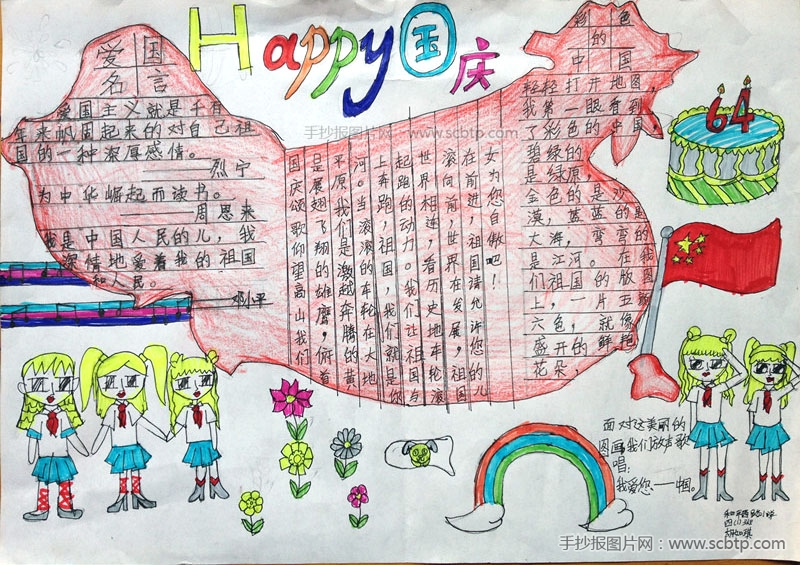 Happy国庆
爱国
名言
爱国主义就是千百
年来巩固起来的对自己祖
国的一种深厚感情。
——烈宁
为中华崛起而读书。
——周恩来
我是中国人民的儿，我
深情地爱着我的祖国
和人民。
——邓小平
手抄报图片网：www.scbtp.com
国庆颂歌仰望高山我们
是展翅飞翔的雄鹰，俯首
不原我们是激越奔腾的黄
河。当滚滚的车轮在大地
上奔跑，祖国，我们就是您
起跑的动力。我们让祖国与
世界相连，看历史地车轮滚
滚向前，世界在发展，祖国
在前进，祖国请允许您的儿
女为您自傲吧！
彩色
的
中国
轻轻打开地图，
我第一眼看到
了彩色的中国，
碧绿的
是绿原，
金色的是沙
漠，蓝蓝的是
大海，弯弯的
是江河。在我
们祖国的版图
上，一片五颜
六色，就像
盛开的鲜艳
花朵，
64
面对这美丽的
图画我们放声歌
唱，
我爱您——中国。
和平西路小学
四(1)班
手抄报图片网：www.scbtp.com